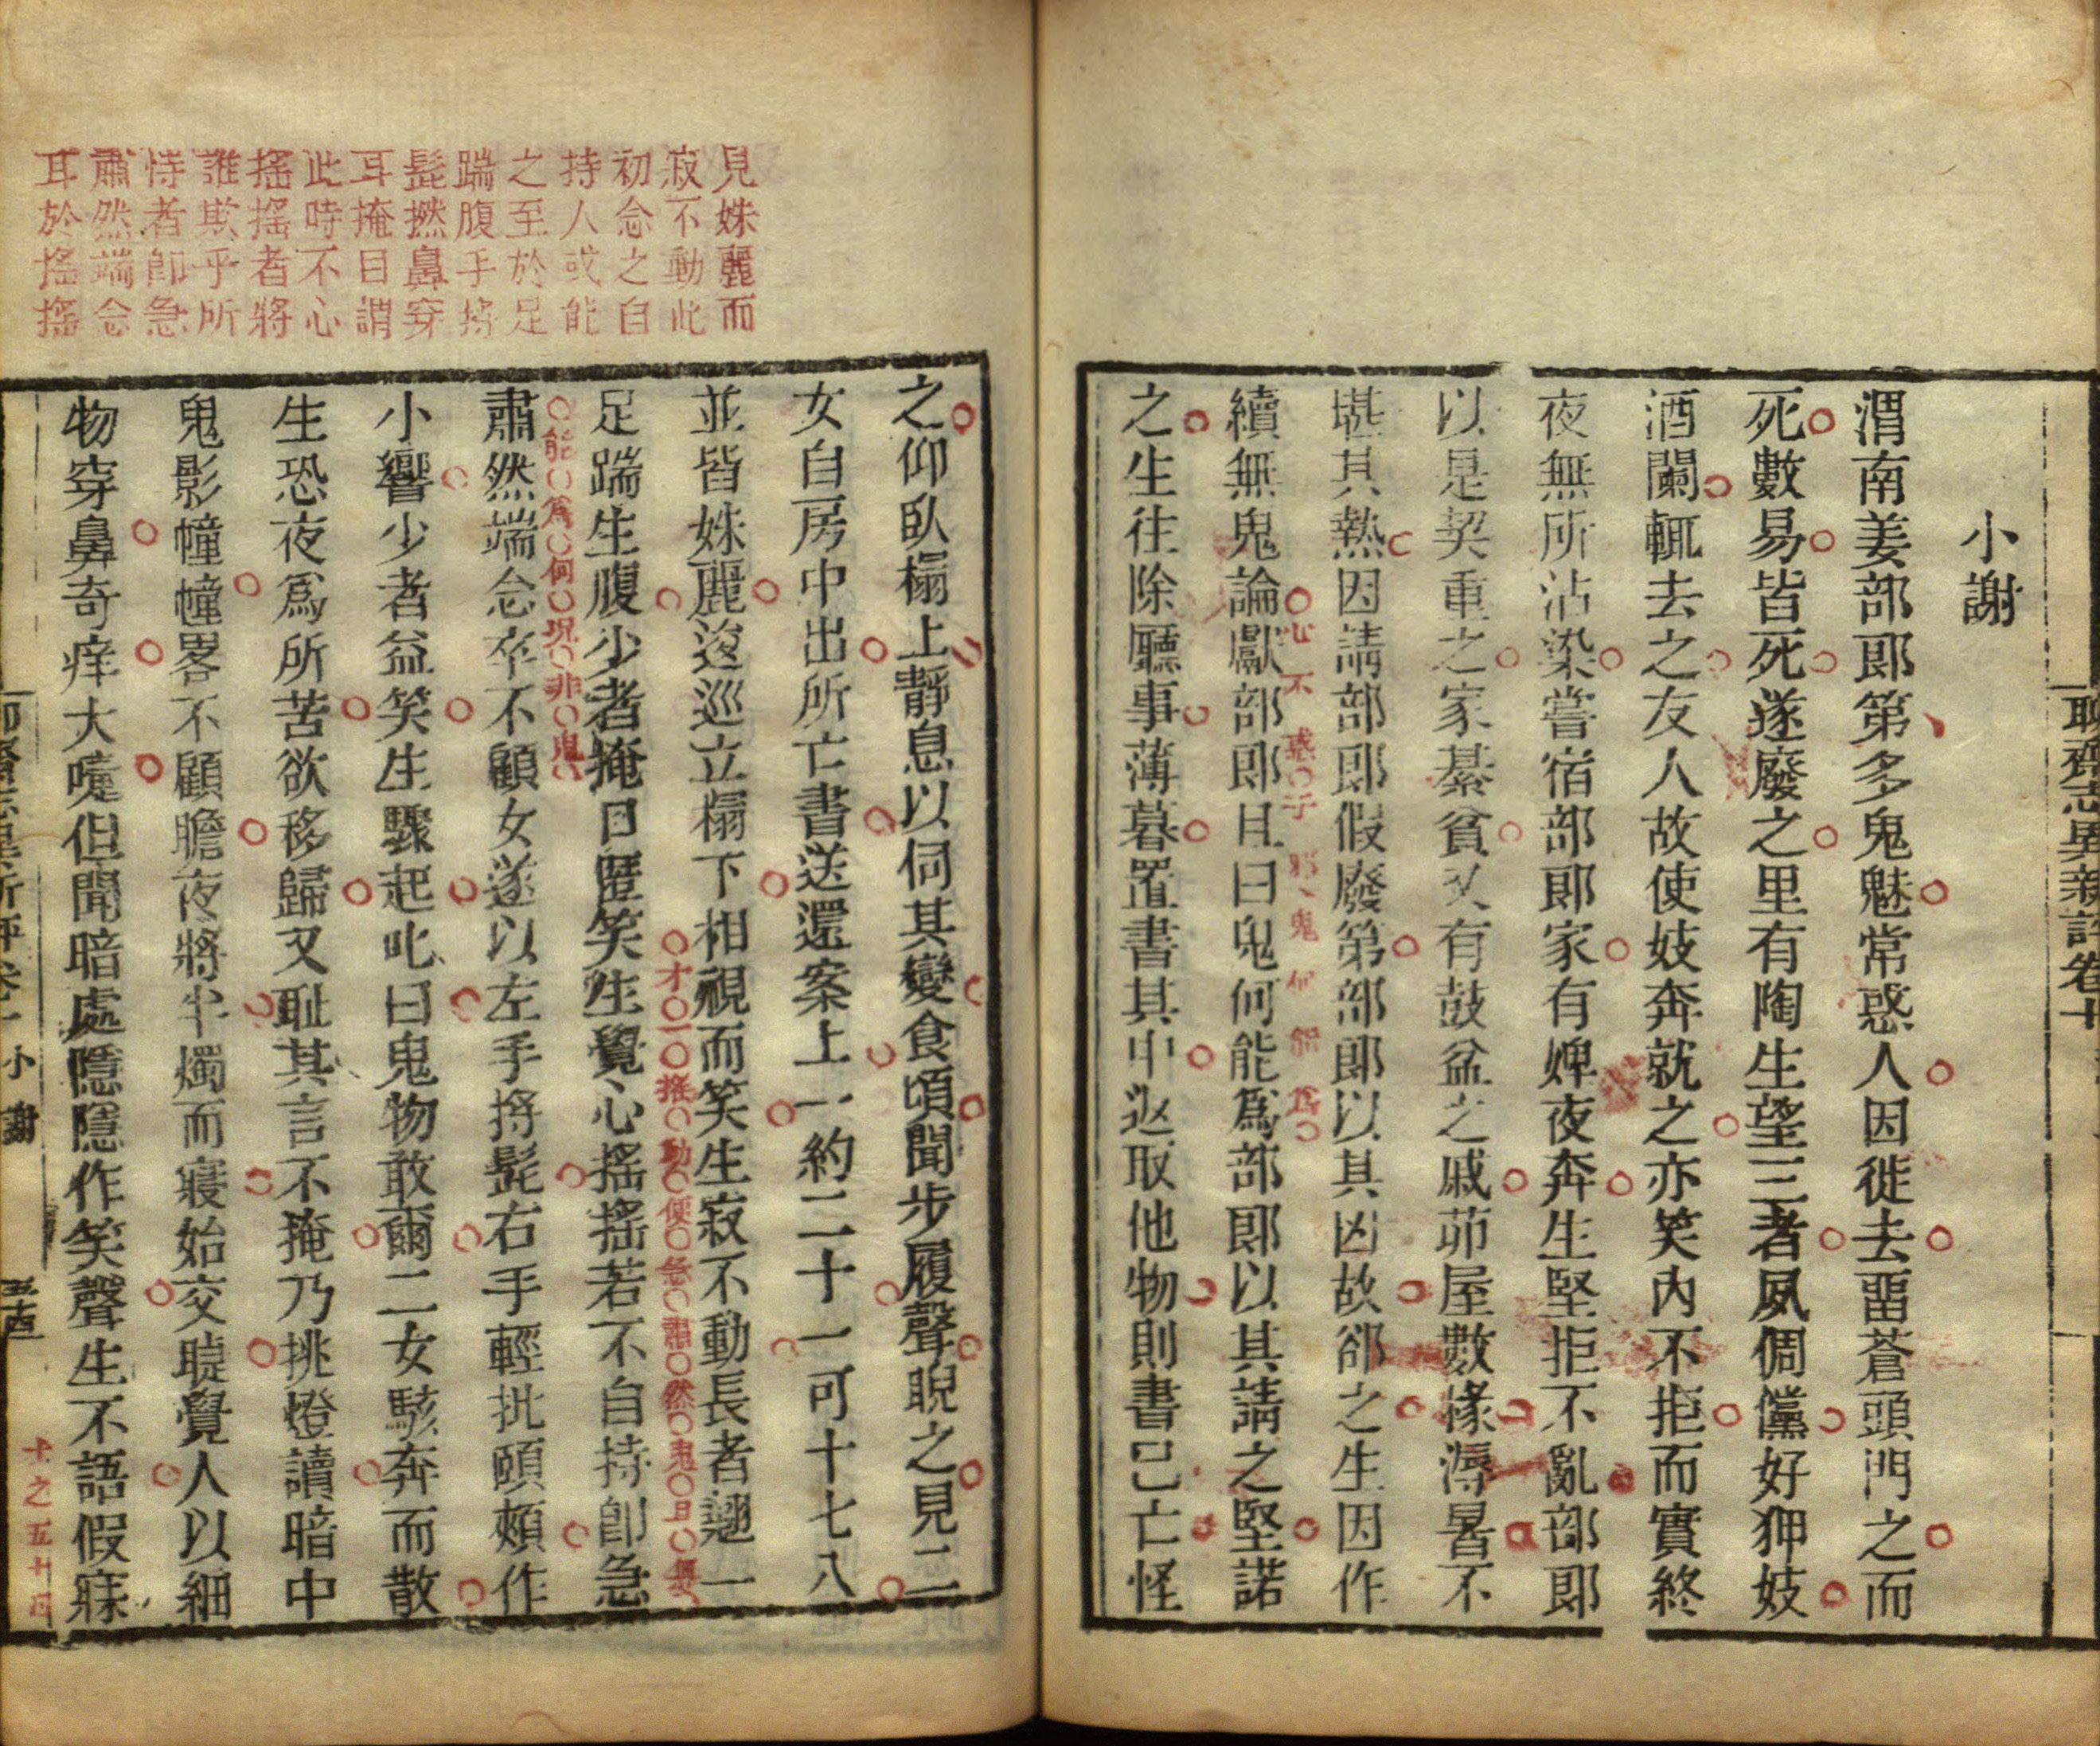 聊齋志異新評卷十
小謝
渭南姜部郎第多鬼魅常惑人因徙去畱蒼頭門之而
死數易皆死遂廢之里有陶生望三者夙倜儻好狎妓
酒闌輒去之友人故使妓奔就之亦笑內不拒而實終
夜無所沾染嘗宿部郎家有婢夜奔生堅拒不亂部郎
以是契重之家綦貧又有鼓盆之戚茆屋數椽溽暑不
堪其熱因請部郎假廢第部郎以其凶故郤之生因作
續無鬼論獻部郎且曰鬼何能爲部郎以其請之堅諾
心不惑于邪鬼何能爲
之生往除廳事薄暮置書其中返取他物則書已亡怪
見姝麗而
寂不動此
初念之自
持人或能
之至於足
踹腹手捋
髭撚鼻穿
耳掩目謂
此時不心
搖搖者將
誰欺乎所
恃者卽急
肅然端念
耳於搖搖
之仰臥榻上靜息以伺其變食頃聞步履聲睨之見二
女自房中出所亡書送還案上一約二十一可十七八
並皆姝麗逡巡立榻下相視而笑生寂不動長者翹一
才一搖動便急肅然鬼且無
足踹生腹少者掩口匿笑生覺心搖搖若不自持卽急
能爲何況非鬼
肅然端念卒不顧女遂以左手捋髭右手輕批頤頰作
小響少者益笑生驟起叱曰鬼物敢爾二女駭奔而散
生恐夜爲所苦欲移歸又耻其言不掩乃挑燈讀暗中
鬼影憧憧畧不顧瞻夜將半燭而寢始交睫覺人以細
物穿鼻奇痒大嚏但聞暗處隱隱作笑聲生不語假寐
小謝